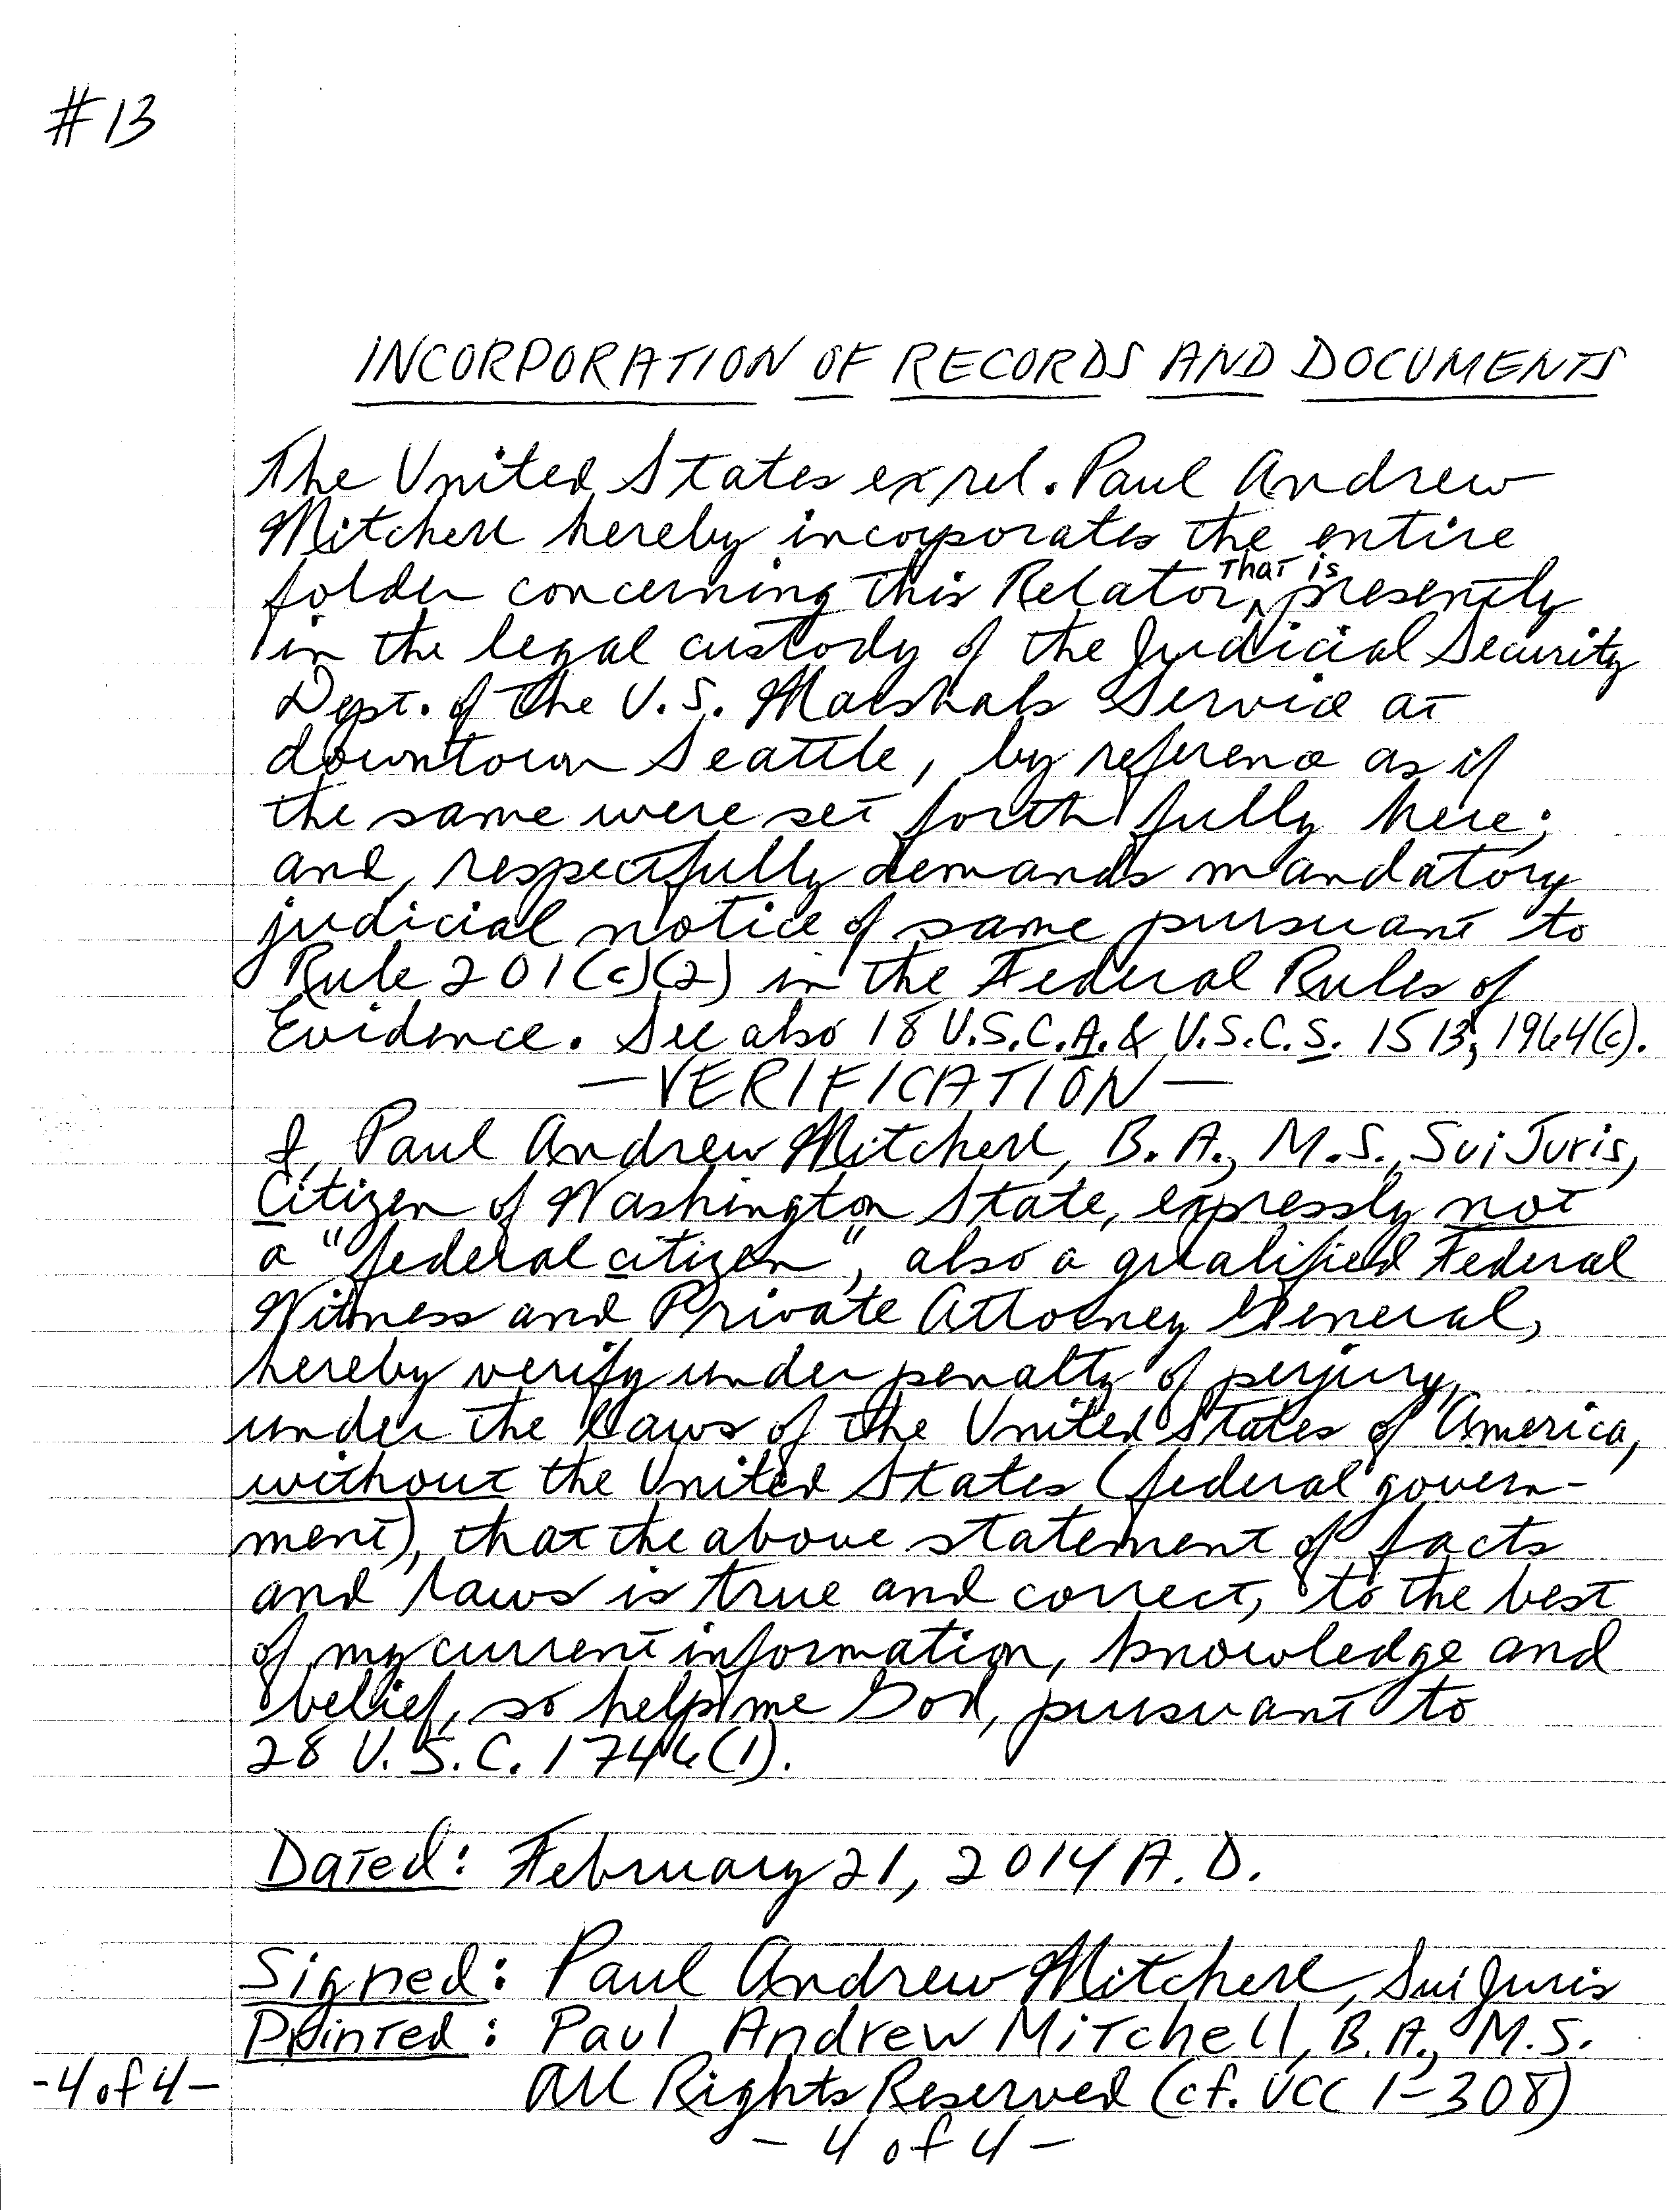 #13
INCORPORATION OF RECORDS AND DOCUMENTS
The United States ex rel. Paul Andrew
Mitchell hereby incorporates the entire
folder concerning this Relator, that is presently
in the legal custody of the Judicial Security
Dept. of the U.S. Marshals Service at
downtown Seattle, by reference as if
the same were set forth fully here;
and, respectfully demands mandatory
judicial notice of same pursuant to
Rule 201(c)(2) in the Federal Rules of
Evidence. See also 18 U.S.C.A. & U.S.C.S. 1513, 1964(c).
—VERIFICATION—
I, Paul Andrew Mitchell, B.A., M.S., Sui Juris,
Citizen of Washington State, expressly not
a "federal citizen", also a qualified Federal
Witness and Private Attorney General,
hereby verify under penalty of perjury,
under the laws of the United States of America,
without the United States (federal govern-
ment), that the above statement of facts
and laws is true and correct, to the best
of my current information, knowledge and
belief, so help me God, pursuant to
28 U.S.C. 1746(1).
Dated: February 21, 2014 A.D.
Signed: Paul Andrew Mitchell, Sui Juris
Printed: Paul Andrew Mitchell, B.A., M.S.
-4 of 4- All Rights Reserved (cf. UCC 1-308)
- 4 of 4 -